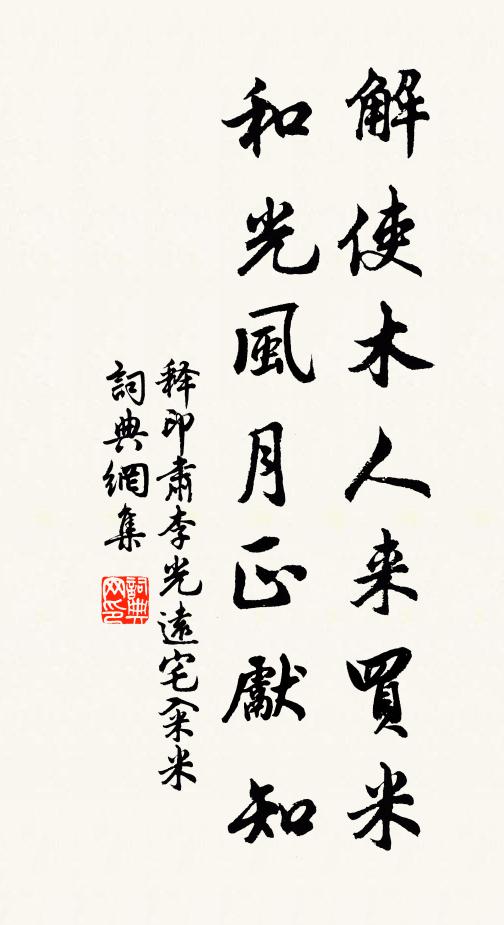 解使木人来買米
和光風月正獻知
释印肃李光遠宅籴米
詞典網集
詞典网印